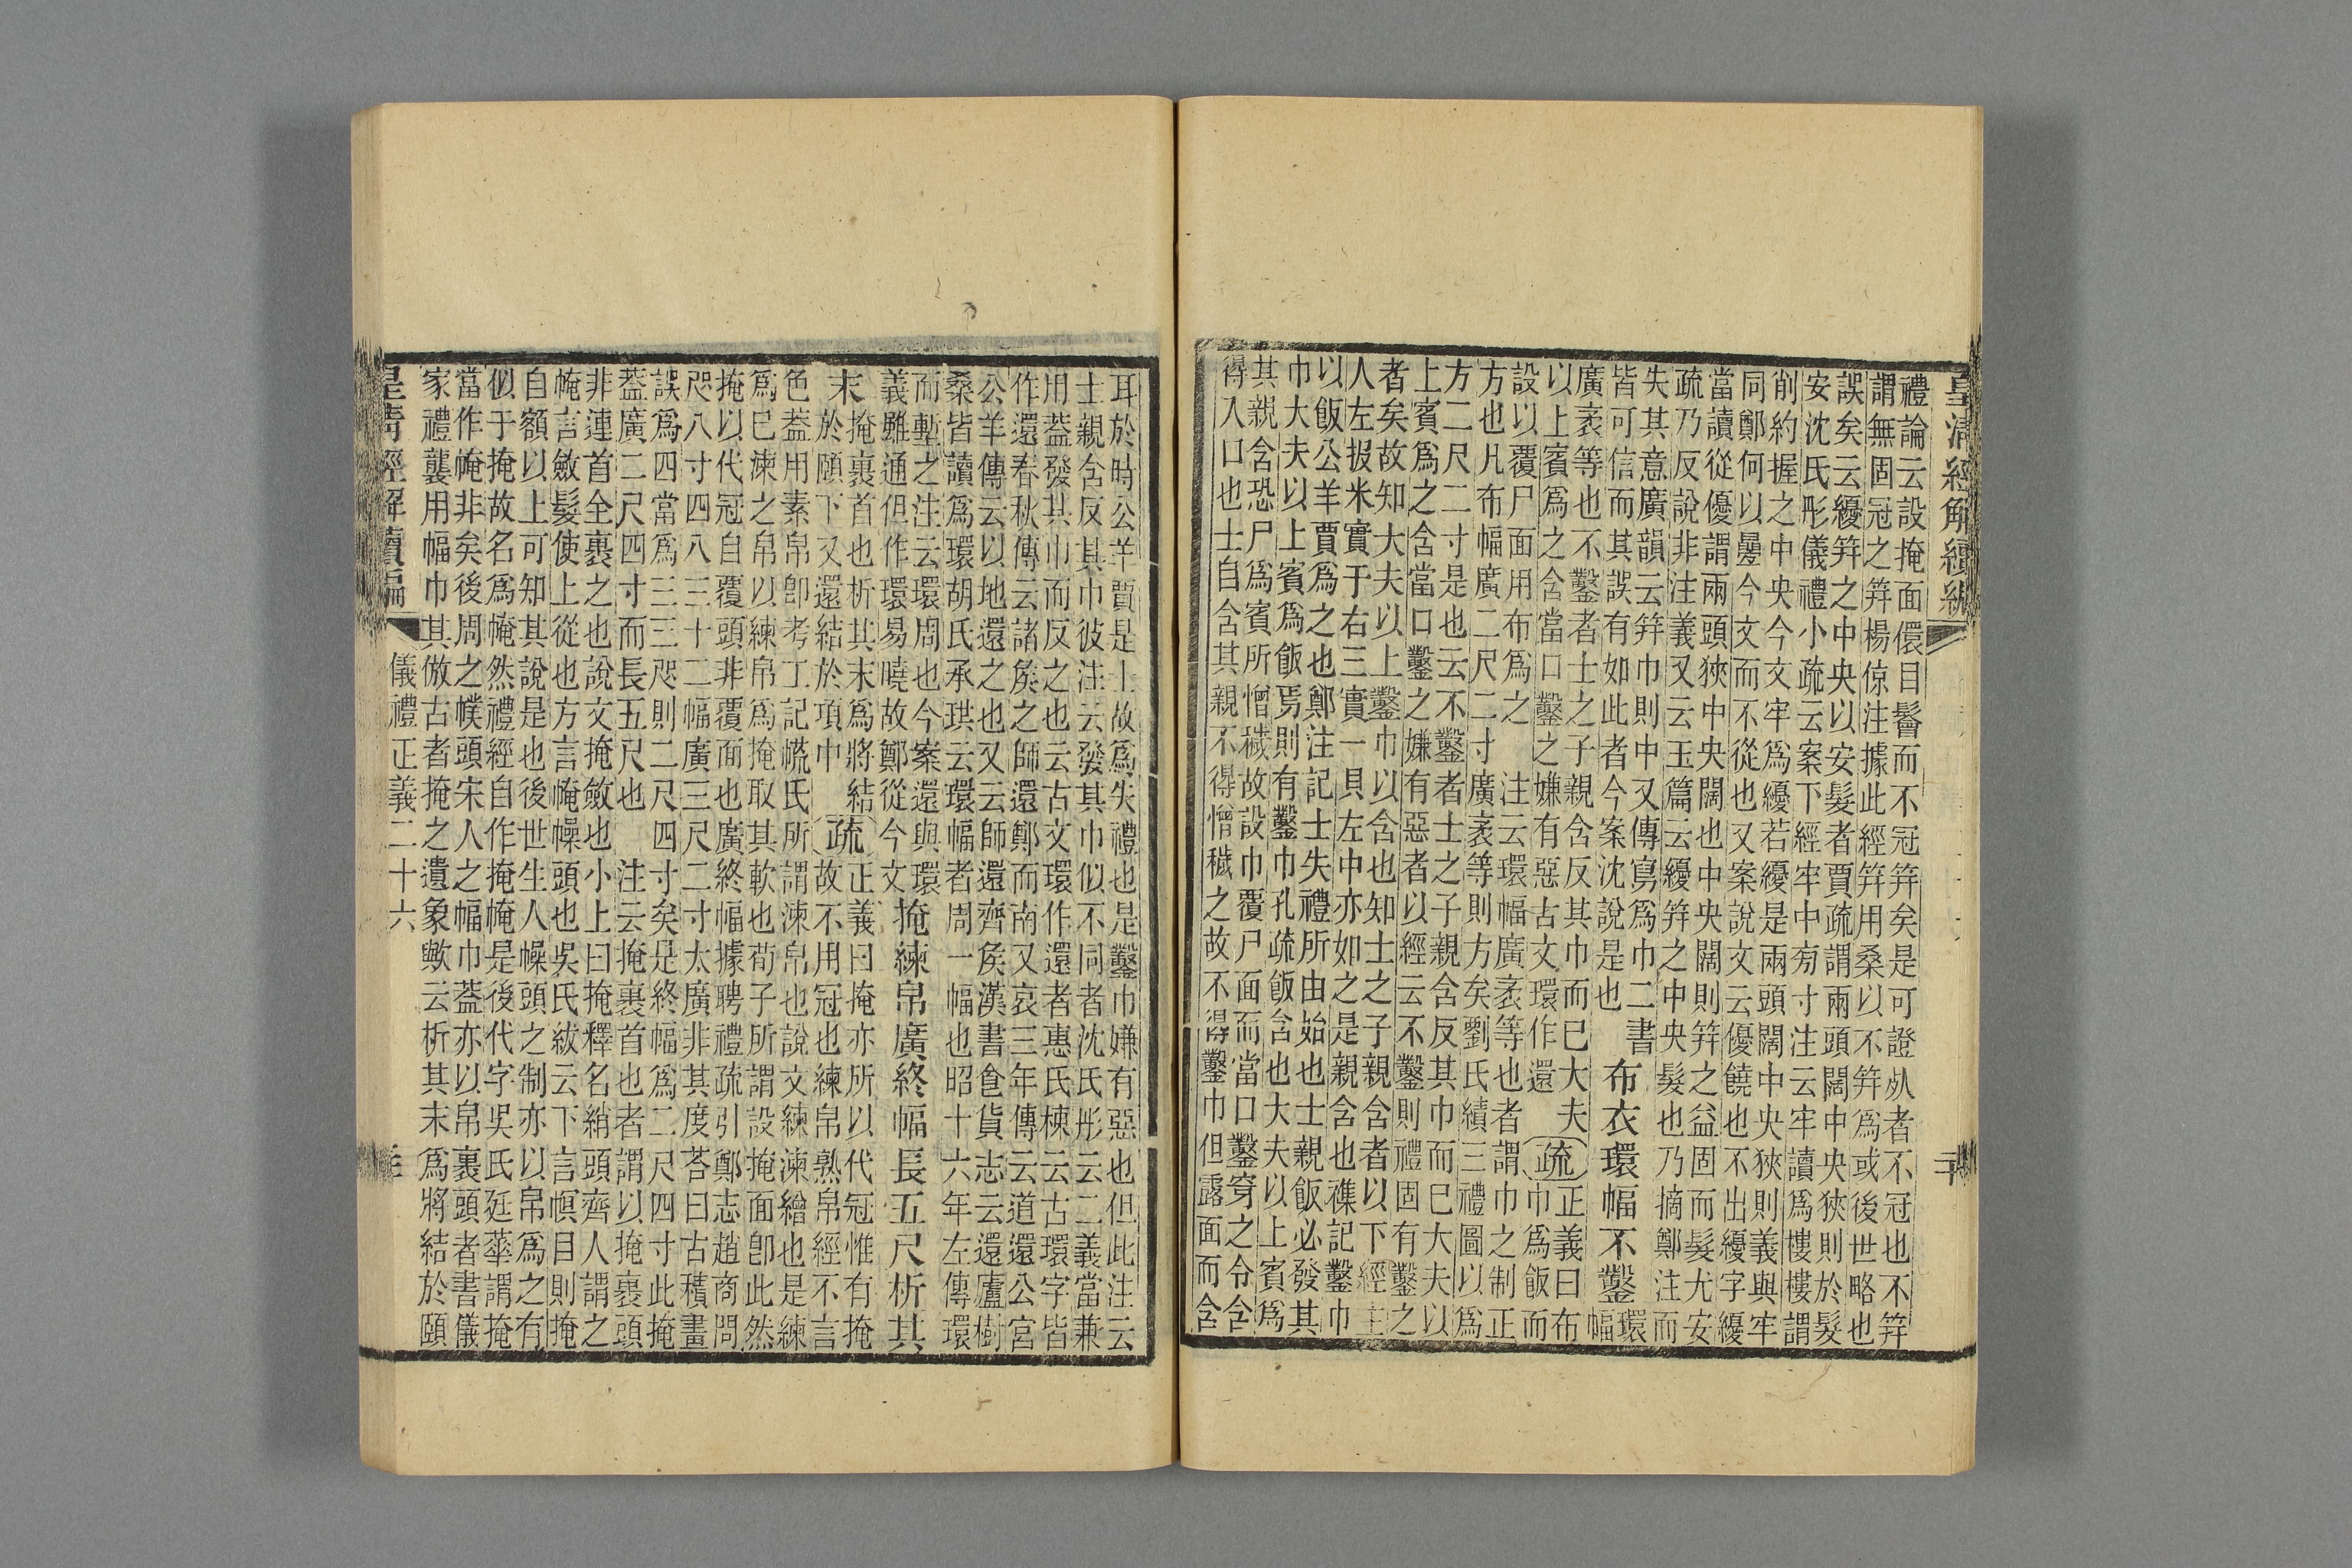 皇清經解續編
禮論云設掩面儇目鬠而不冠笄矣是可證𣦸者不冠也不笄
謂無固冠之笄楊倞注據此經笄用桑以不笄爲或後世略也
誤矣云纋笄之中央以安髮者賈疏謂兩頭闊中央狹則於髮
安沈氏彤儀禮小疏云案下經牢中旁寸注云牢讀爲樓樓謂
削約握之中央今文牢爲纋若纋是兩頭闊中央狹則義與牢
同鄭何以疊今文而不從也又案說文云優饒也不出纋字纋
當讀從優謂兩頭狹中央闊也中央闊則笄之益固而髮尤安
疏乃反說非注義又云玉篇云纋笄之中央髮也乃摘鄭注而
失其意廣韻云笄巾則中又傳寫爲巾二書
皆可信而其誤有如此者今案沈說是也
布衣環幅不鑿
環幅
廣袤等也不鑿者士之子親含反其巾而已大夫
以上賓爲之含當口鑿之嫌有惡古文環作還
疏
正義曰布
巾爲飯而
設以覆尸面用布爲之 注云環幅廣袤等也者謂巾之制正
方也凡布幅廣二尺二寸 廣袤等則方矣劉氏績三禮圖以爲
方二尺二寸是也云不鑿者士之子親含反其巾而已大夫以
上賓爲之含當口鑿之嫌有惡者以經云不鑿則禮固有鑿之
者矣故知大夫以上鑿巾以含也知士之子親含者以下經主
人左扱米實于右三實一貝左中亦如之是親含也襍記鑿巾
以飯公羊賈爲之也鄭注記士失禮所由始也士親飯必發其
巾大夫以上賓爲飯焉則有鑿巾孔疏飯含也大夫以上賓爲
其親含恐尸爲賓所憎穢故設巾覆尸面而當口鑿穿之令含
得入口也士自含其親不得憎穢之故不得鑿巾但露面而含
耳於時公羊賈是士故爲失禮也是鑿巾嫌有惡也但此注云
士親含反其巾彼注云發其巾似不同者沈氏彤云二義當兼
用蓋發其巾而反之也云古文環作還者惠氏棟云古環字皆
作還春秋傳云諸侯之師還鄭而南又哀三年傳云道還公宮
公羊傳云以地還之也又云師還齊侯漢書食貨志云還廬樹
桑皆讀爲環胡氏承珙云環幅者周一幅也昭十六年左傳環
而塹之注云環周也今案還與環
義雖通但作環易曉故鄭從今文
掩練帛廣終幅長五尺析其
末
掩裹首也析其末爲將結
於頤下又還結於項中
疏
正義曰掩亦所以代冠惟有掩
故不用冠也練帛熟帛經不言
色蓋用素帛卽考工記㡛氏所謂湅帛也說文練湅繒也是練
爲已湅之帛以練帛爲掩取其軟也荀子所謂設掩面卽此然
掩以代冠自覆頭非覆面也廣終幅據聘禮疏引鄭志趙商問
咫八寸四八三十二幅廣三尺二寸太廣非其度荅曰古積畫
誤爲四當爲三三咫則二尺四寸矣是終幅爲二尺四寸此掩
蓋廣二尺四寸而長五尺也 注云掩裹首也者謂以掩裹頭
非連首全裹之也說文掩斂也小上曰掩釋名綃頭齊人謂之
㡋言斂髮使上從也方言㡋幧頭也吳氏紱云下言幎目則掩
自額以上可知其說是也後世生人幧頭之制亦以帛爲之有
似于掩故名爲㡋然禮經自作掩㡋是後代字吳氏廷華謂掩
當作㡋非矣後周之幞頭宋人之幅巾蓋亦以帛裹頭者書儀
家禮襲用幅巾其倣古者掩之遺象歟云析其末爲將結於頤
皇清經解續編
儀禮正義二十六